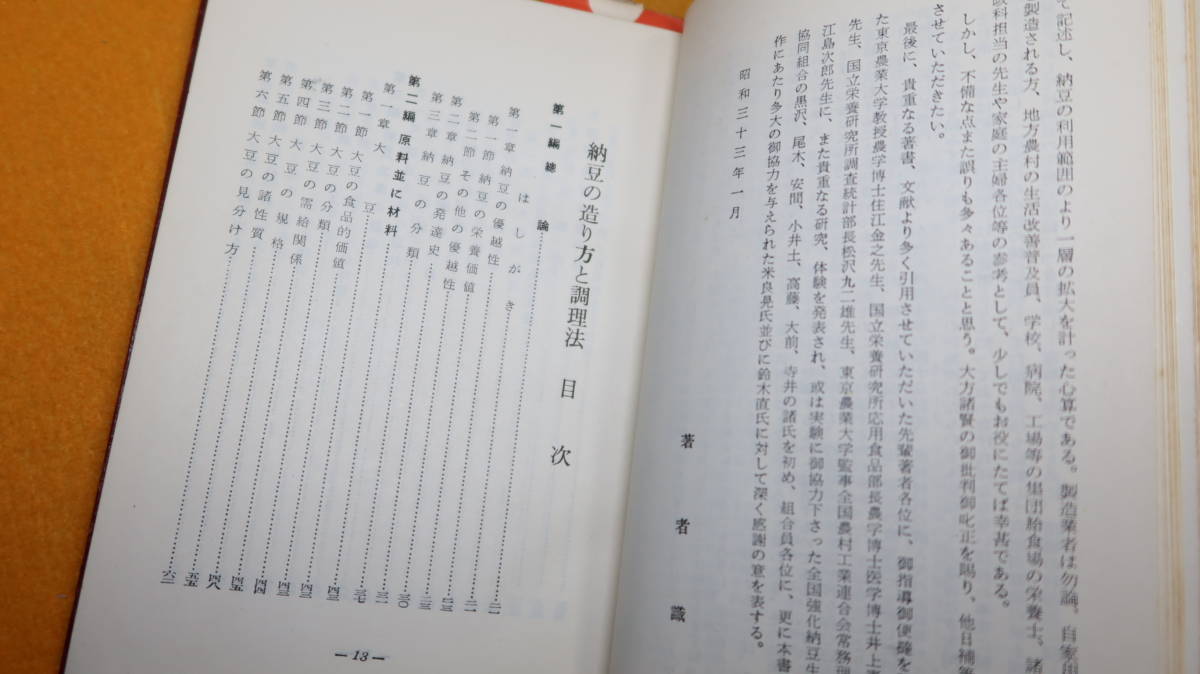 て記述し、納豆の利用範囲のより一層の拡大を計った心算である。製造業者は勿論、自家用
製造される方、地方農村の生活改善普及員、学校、病院、工場等の集団給食場の栄養士、諸
科担当の先生や家庭の主婦各位等の参考として、少しでもお役にたてば幸甚である。
しかし、不備な点また誤りも多々あることと思う。大方諸賢の御批判御叱正を賜り、他日補筆
させていただきたい。
最後に、貴重なる著書、文献より多く引用させていただいた先輩著者各位に、御指導御便宜を
た東京農業大学教授農学博士住江金之先生、国立栄養研究所応用食品部長農学博士医学博士井上
先生、国立栄養研究所調査統計部長松沢九二雄先生、東京農業大学監事全国農村工業連合会常務理
江島次郎先生に、また貴重なる研究、体験を発表され、或は実験に御協力下さった全国強化納豆生
協同組合の黒沢、尾木、安間、小井土、高藤、大前、寺井の諸氏を初め、組合員各位に、更に本書
作にあたり多大の御協力を与えられた米良晃氏並びに鈴木直氏に対して深く感謝の意を表する。
昭和三十三年一月
著者識
納豆の造り方と調理法 目次
第一編 総論
はしがき……二一
第一章 納豆の優越性……二一
第一節 納豆の栄養価値……二三
第二節 その他の優越性……二三
第二章 納豆の発達史……三〇
第三章 納豆の分類……三一
第二編 原料並に材料
第一章 大豆……三七
第一節 大豆の食品的価値……四三
第二節 大豆の分類……四三
第三節 大豆の需給関係……四四
第四節 大豆の規格……四五
第五節 大豆の諸性質……四八
第六節 大豆の見分け方……五五
六二
—13—